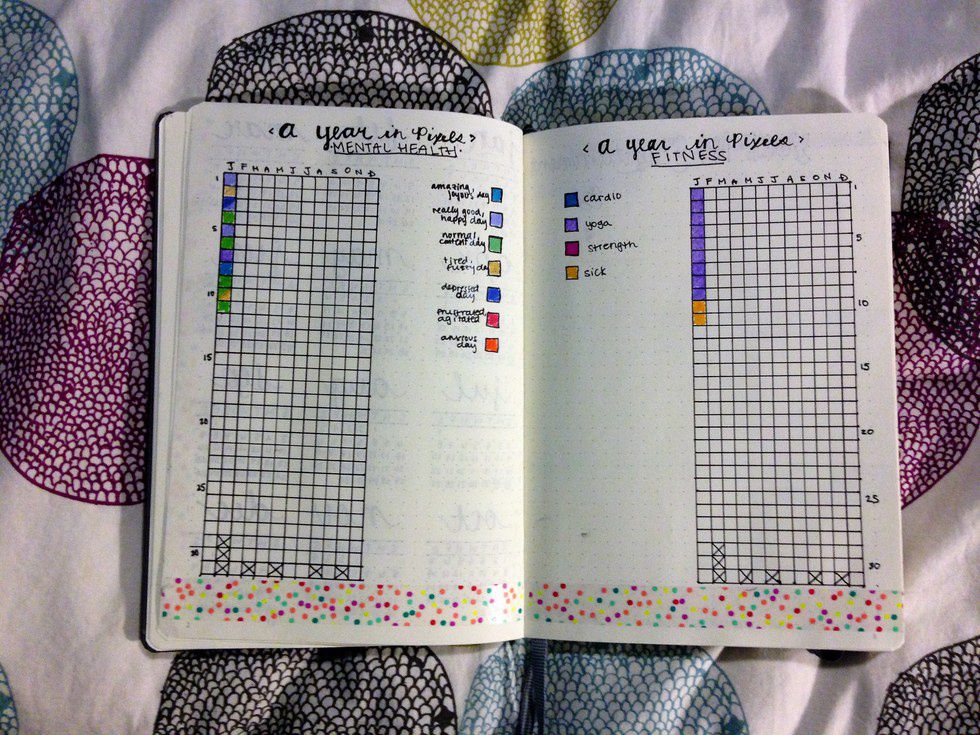 < a year in Pixels >
·MENTAL HEALTH·
J F M A M J J A S O N D
1
5
10
15
20
25
30
amazing,
joyous day
really good,
happy day
normal,
content day
tired,
fuzzy day
depressed
day
frustrated,
agitated
anxious
day
< a year in Pixels >
FITNESS
cardio
yoga
strength
sick
J F M A M J J A S O N D
1
5
10
15
20
25
30